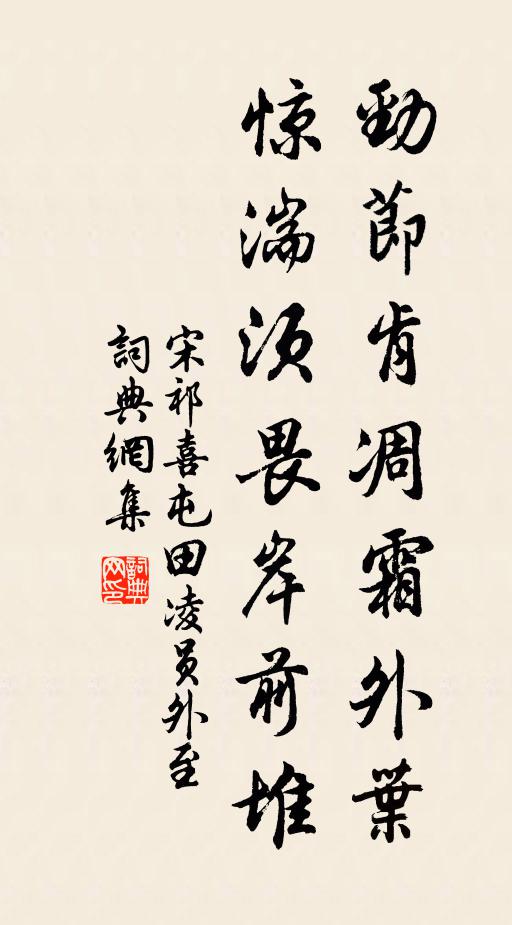 勁節肯凋霜外葉
惊湍须畏岸前堆
宋祁喜屯田凌员外至
詞典網集
詞典
网印